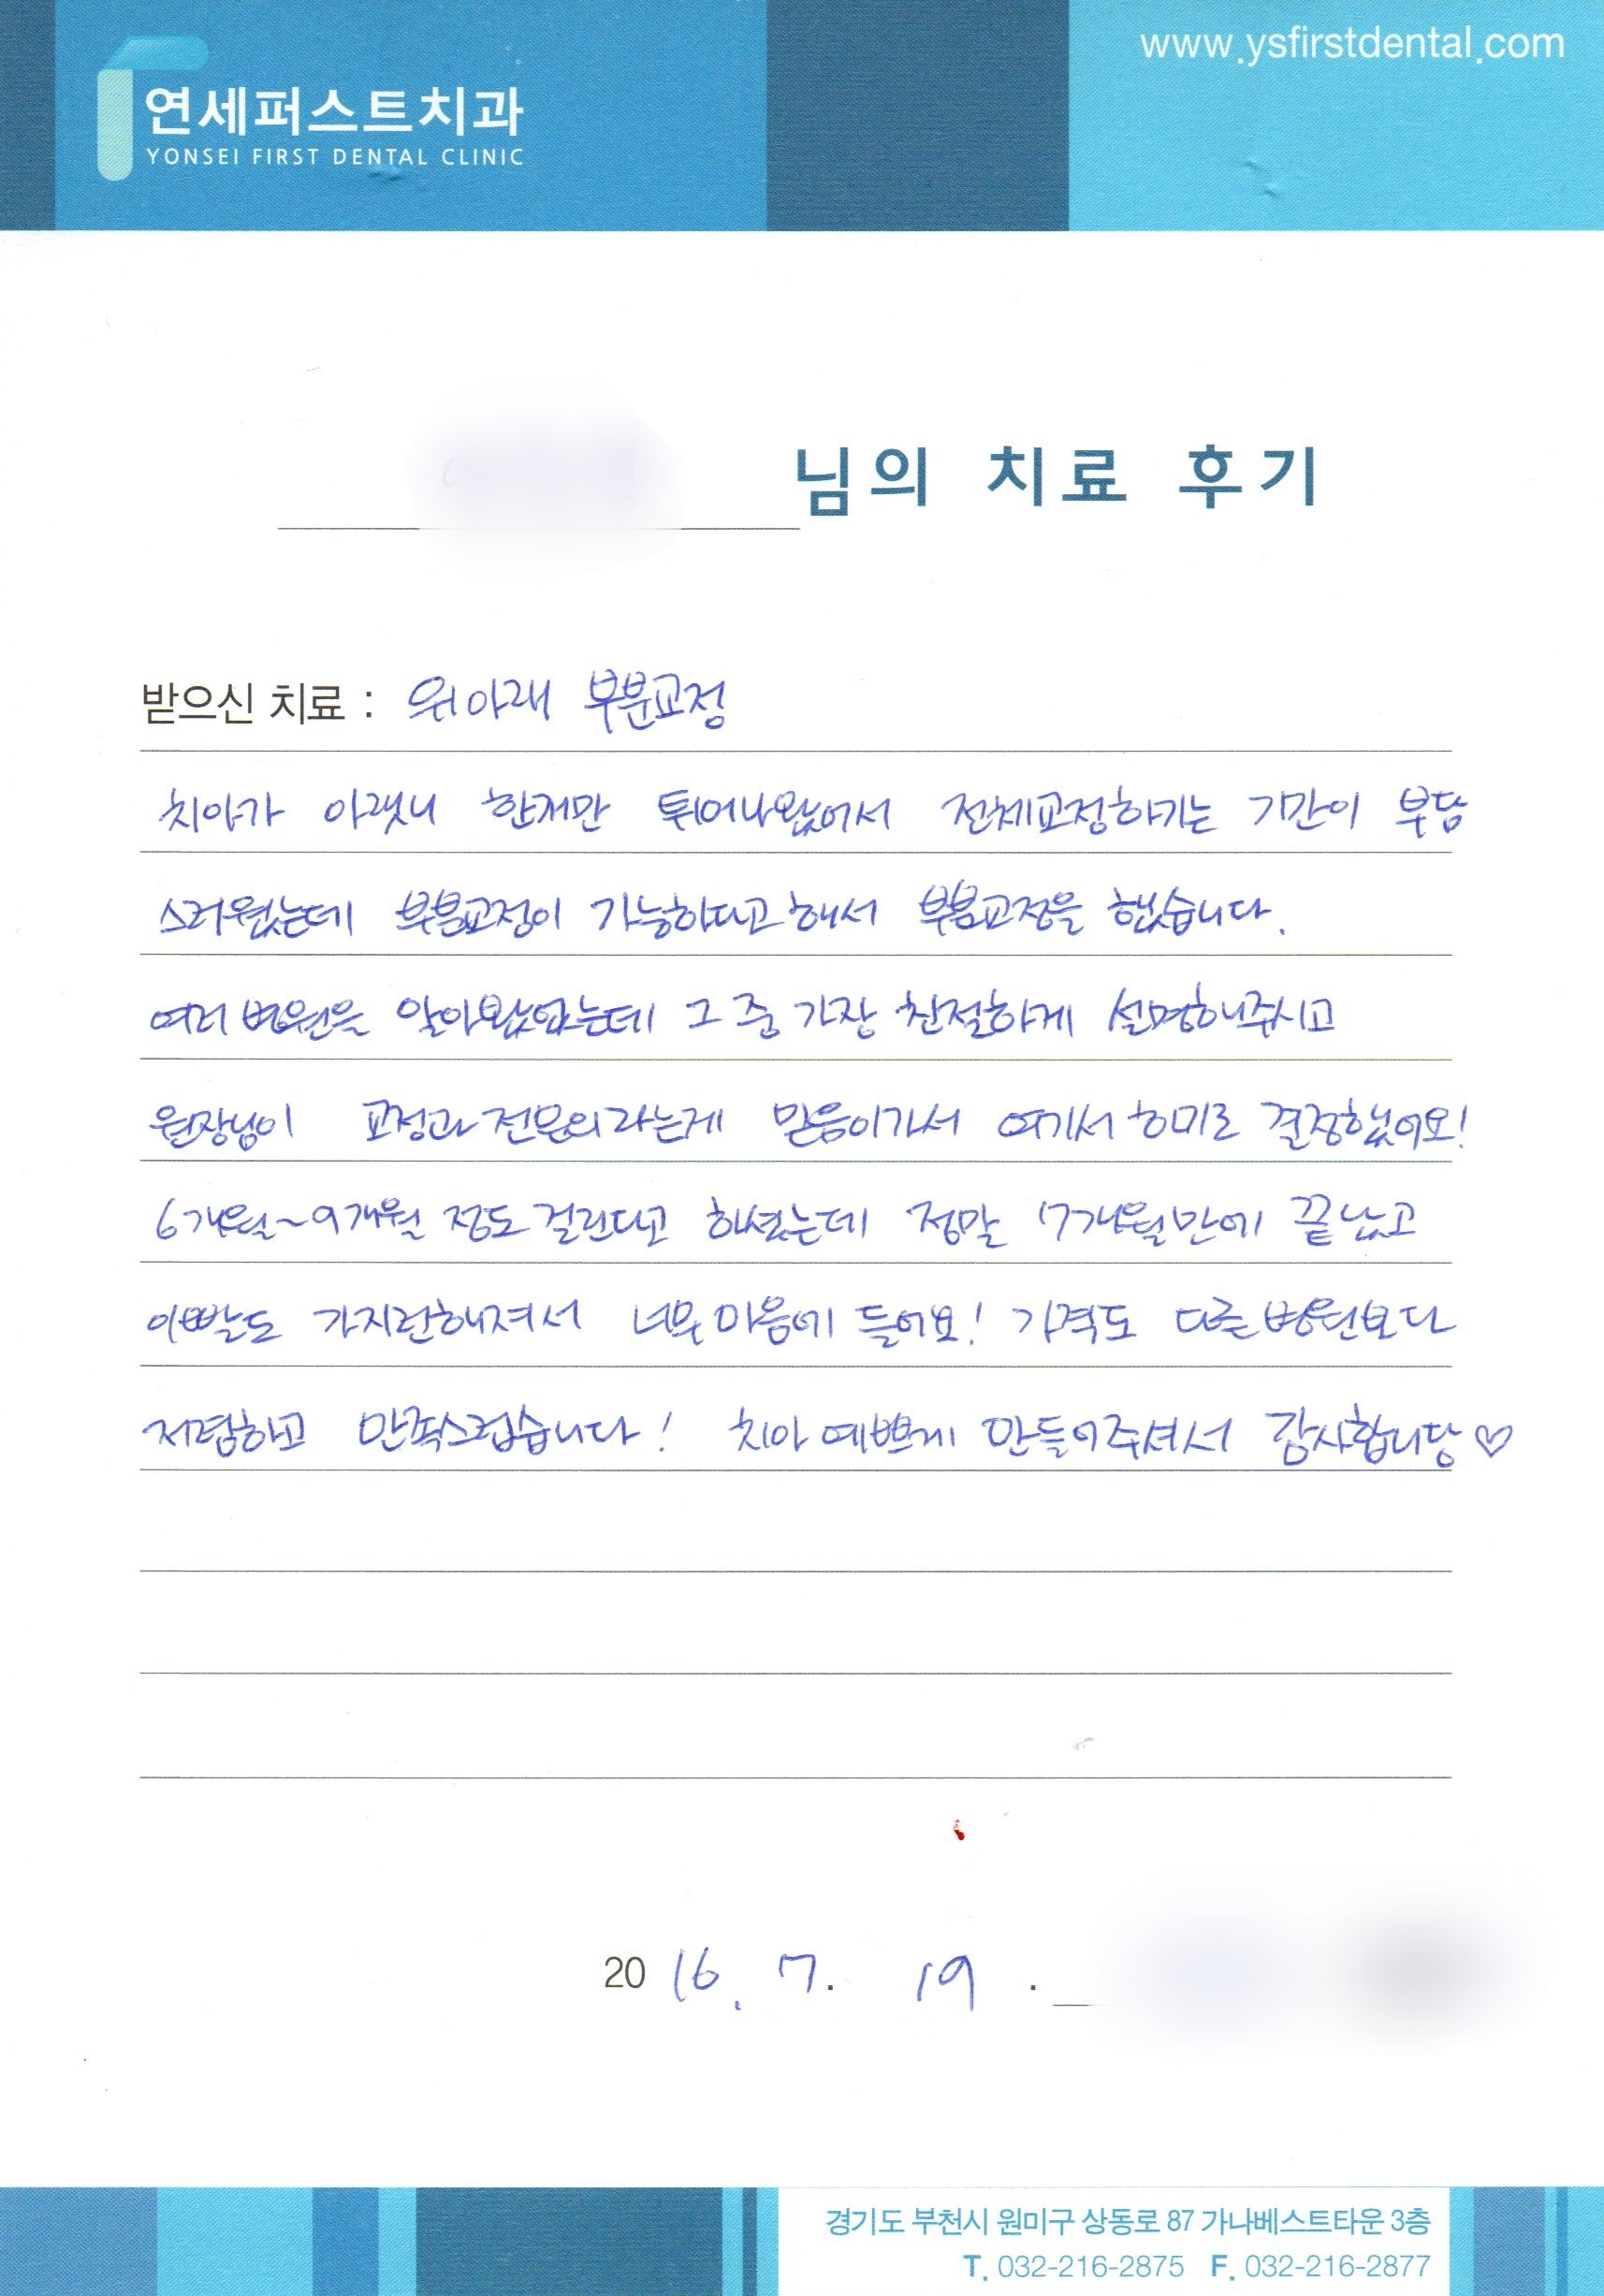 www.ysfirstdental.com
연세퍼스트치과
YONSEI FIRST DENTAL CLINIC
님의 치료 후기
받으신 치료 : 위아래 부분교정
치아가 아랫니 한개만 튀어나왔어서 전체교정하기는 기간이 부담
스러웠는데 부분교정이 가능하다고해서 부분교정을 했습니다.
여러병원을 알아봤었는데 그 중 가장 친절하게 설명해주시고
원장님이 교정과전문의라는게 믿음이가서 여기서 하기로 결정했어요!
6개월~9개월 정도 걸린다고 하셨는데 정말 7개월만에 끝났고
이빨도 가지런해져서 너무 마음에 들어요! 가격도 다른병원보다
저렴하고 만족스럽습니다! 치아 예쁘게 만들어주셔서 감사합니당♡
2016. 7. 19 .
경기도 부천시 원미구 상동로 87 가나베스트타운 3층
T. 032-216-2875 F. 032-216-2877